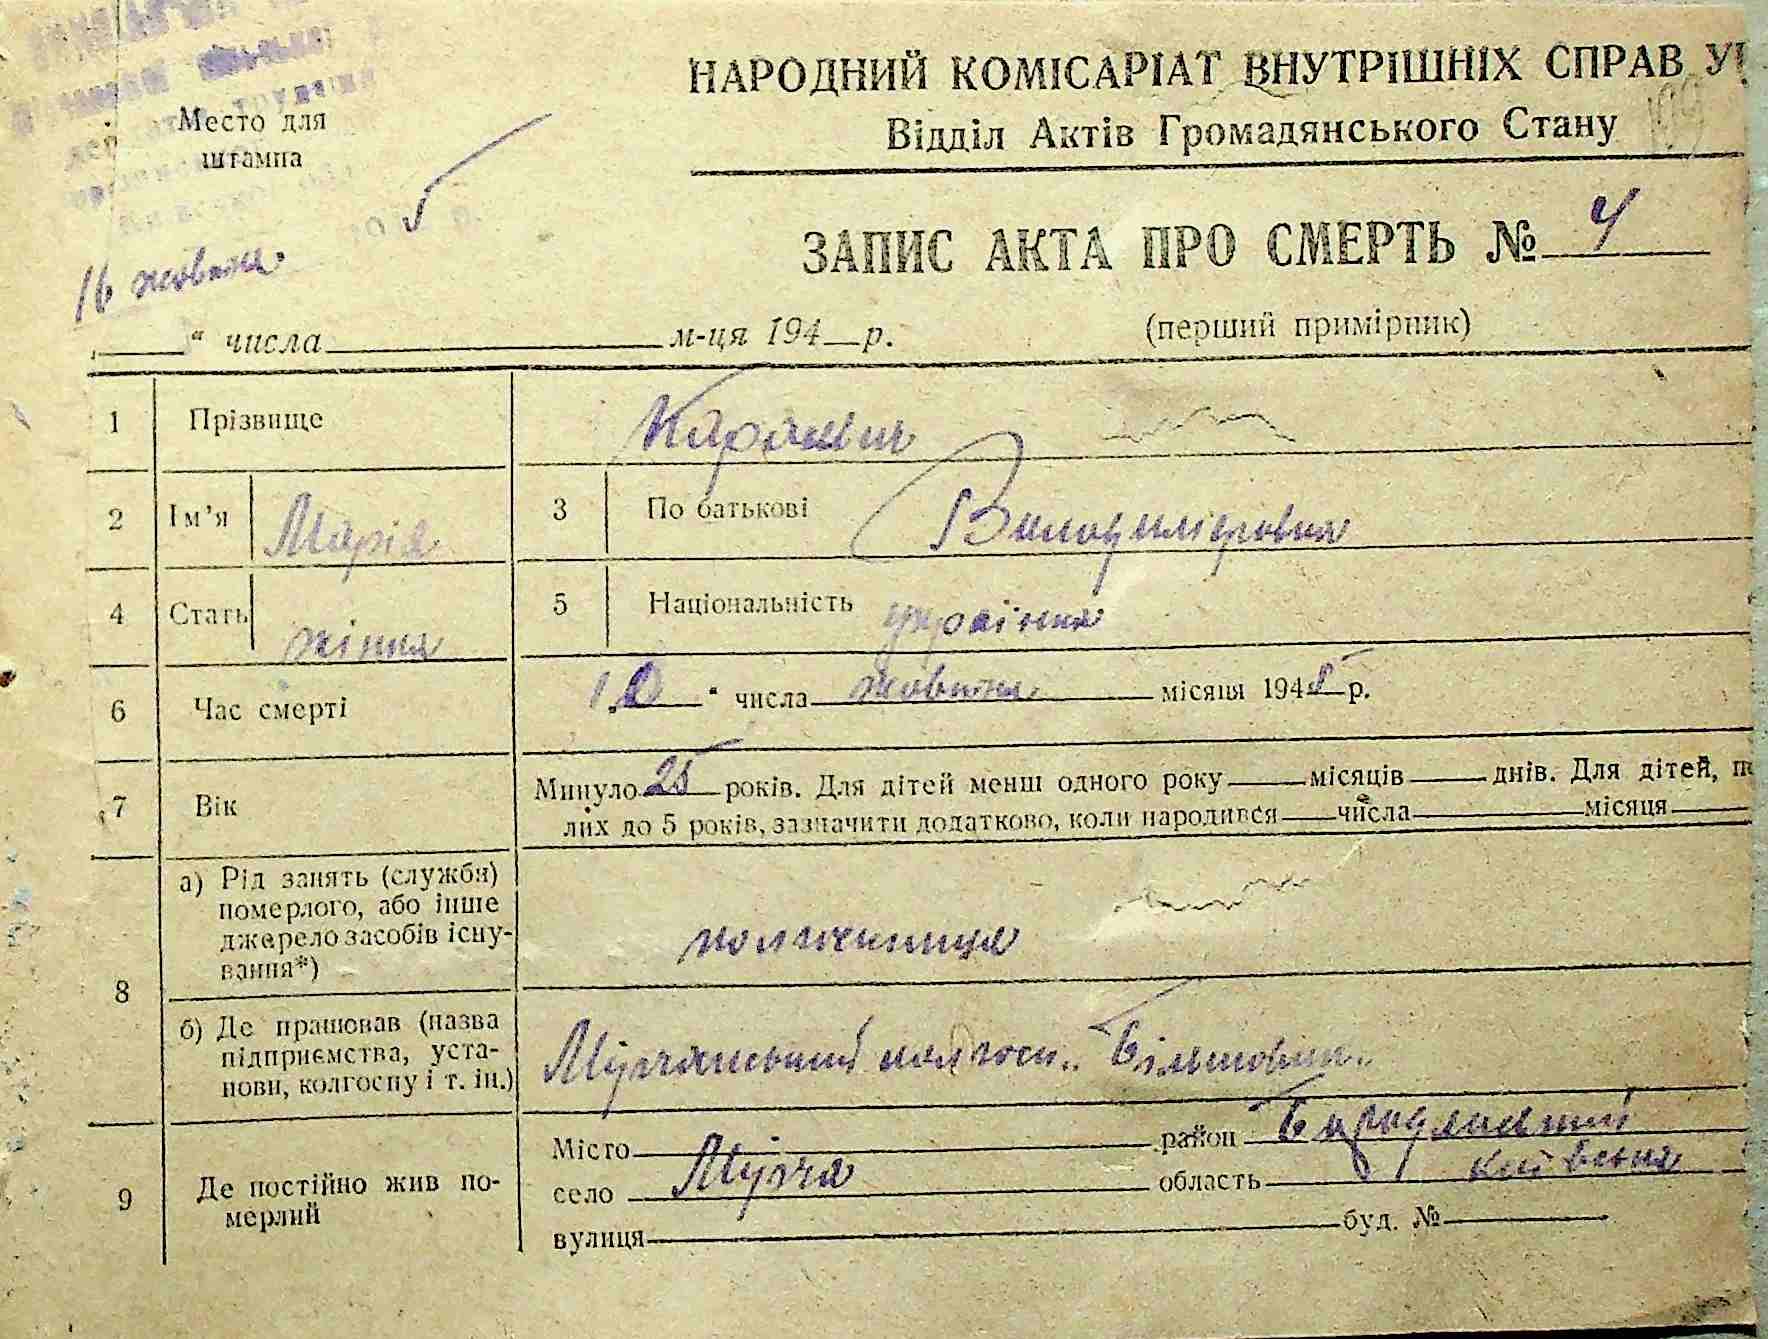 НАРОДНИЙ КОМІСАРІАТ ВНУТРІШНІХ СПРАВ У
Відділ Актів Громадянського Стану
Место для
штампа
5
ЗАПИС АКТА ПРО СМЕРТЬ № 4
16 жовтня
(перший примірник)
" числа м-ця 194 р.
1 Прізвище
2 Ім'я Марія 3 По батькові Володимирівна
4 Стать жіноча 5 Національність українка
6 Час смерті 10 " числа жовтня місяця 1945 р.
7 Вік Минуло 25 років. Для дітей менш одного року місяців днів. Для дітей, по
лих до 5 років, зазначити додатково, коли народився числа місяця
8 а) Рід занять (служби)
померлого, або інше
джерело засобів існу-
вання*) колгоспниця
б) Де працював (назва
підприємства, уста-
нови, колгоспу і т. ін.) колгосп „Більшовик"
9 Де постійно жив по-
мерлий
Місто район Бородянський
село Мірча область Київська
вулиця буд. №